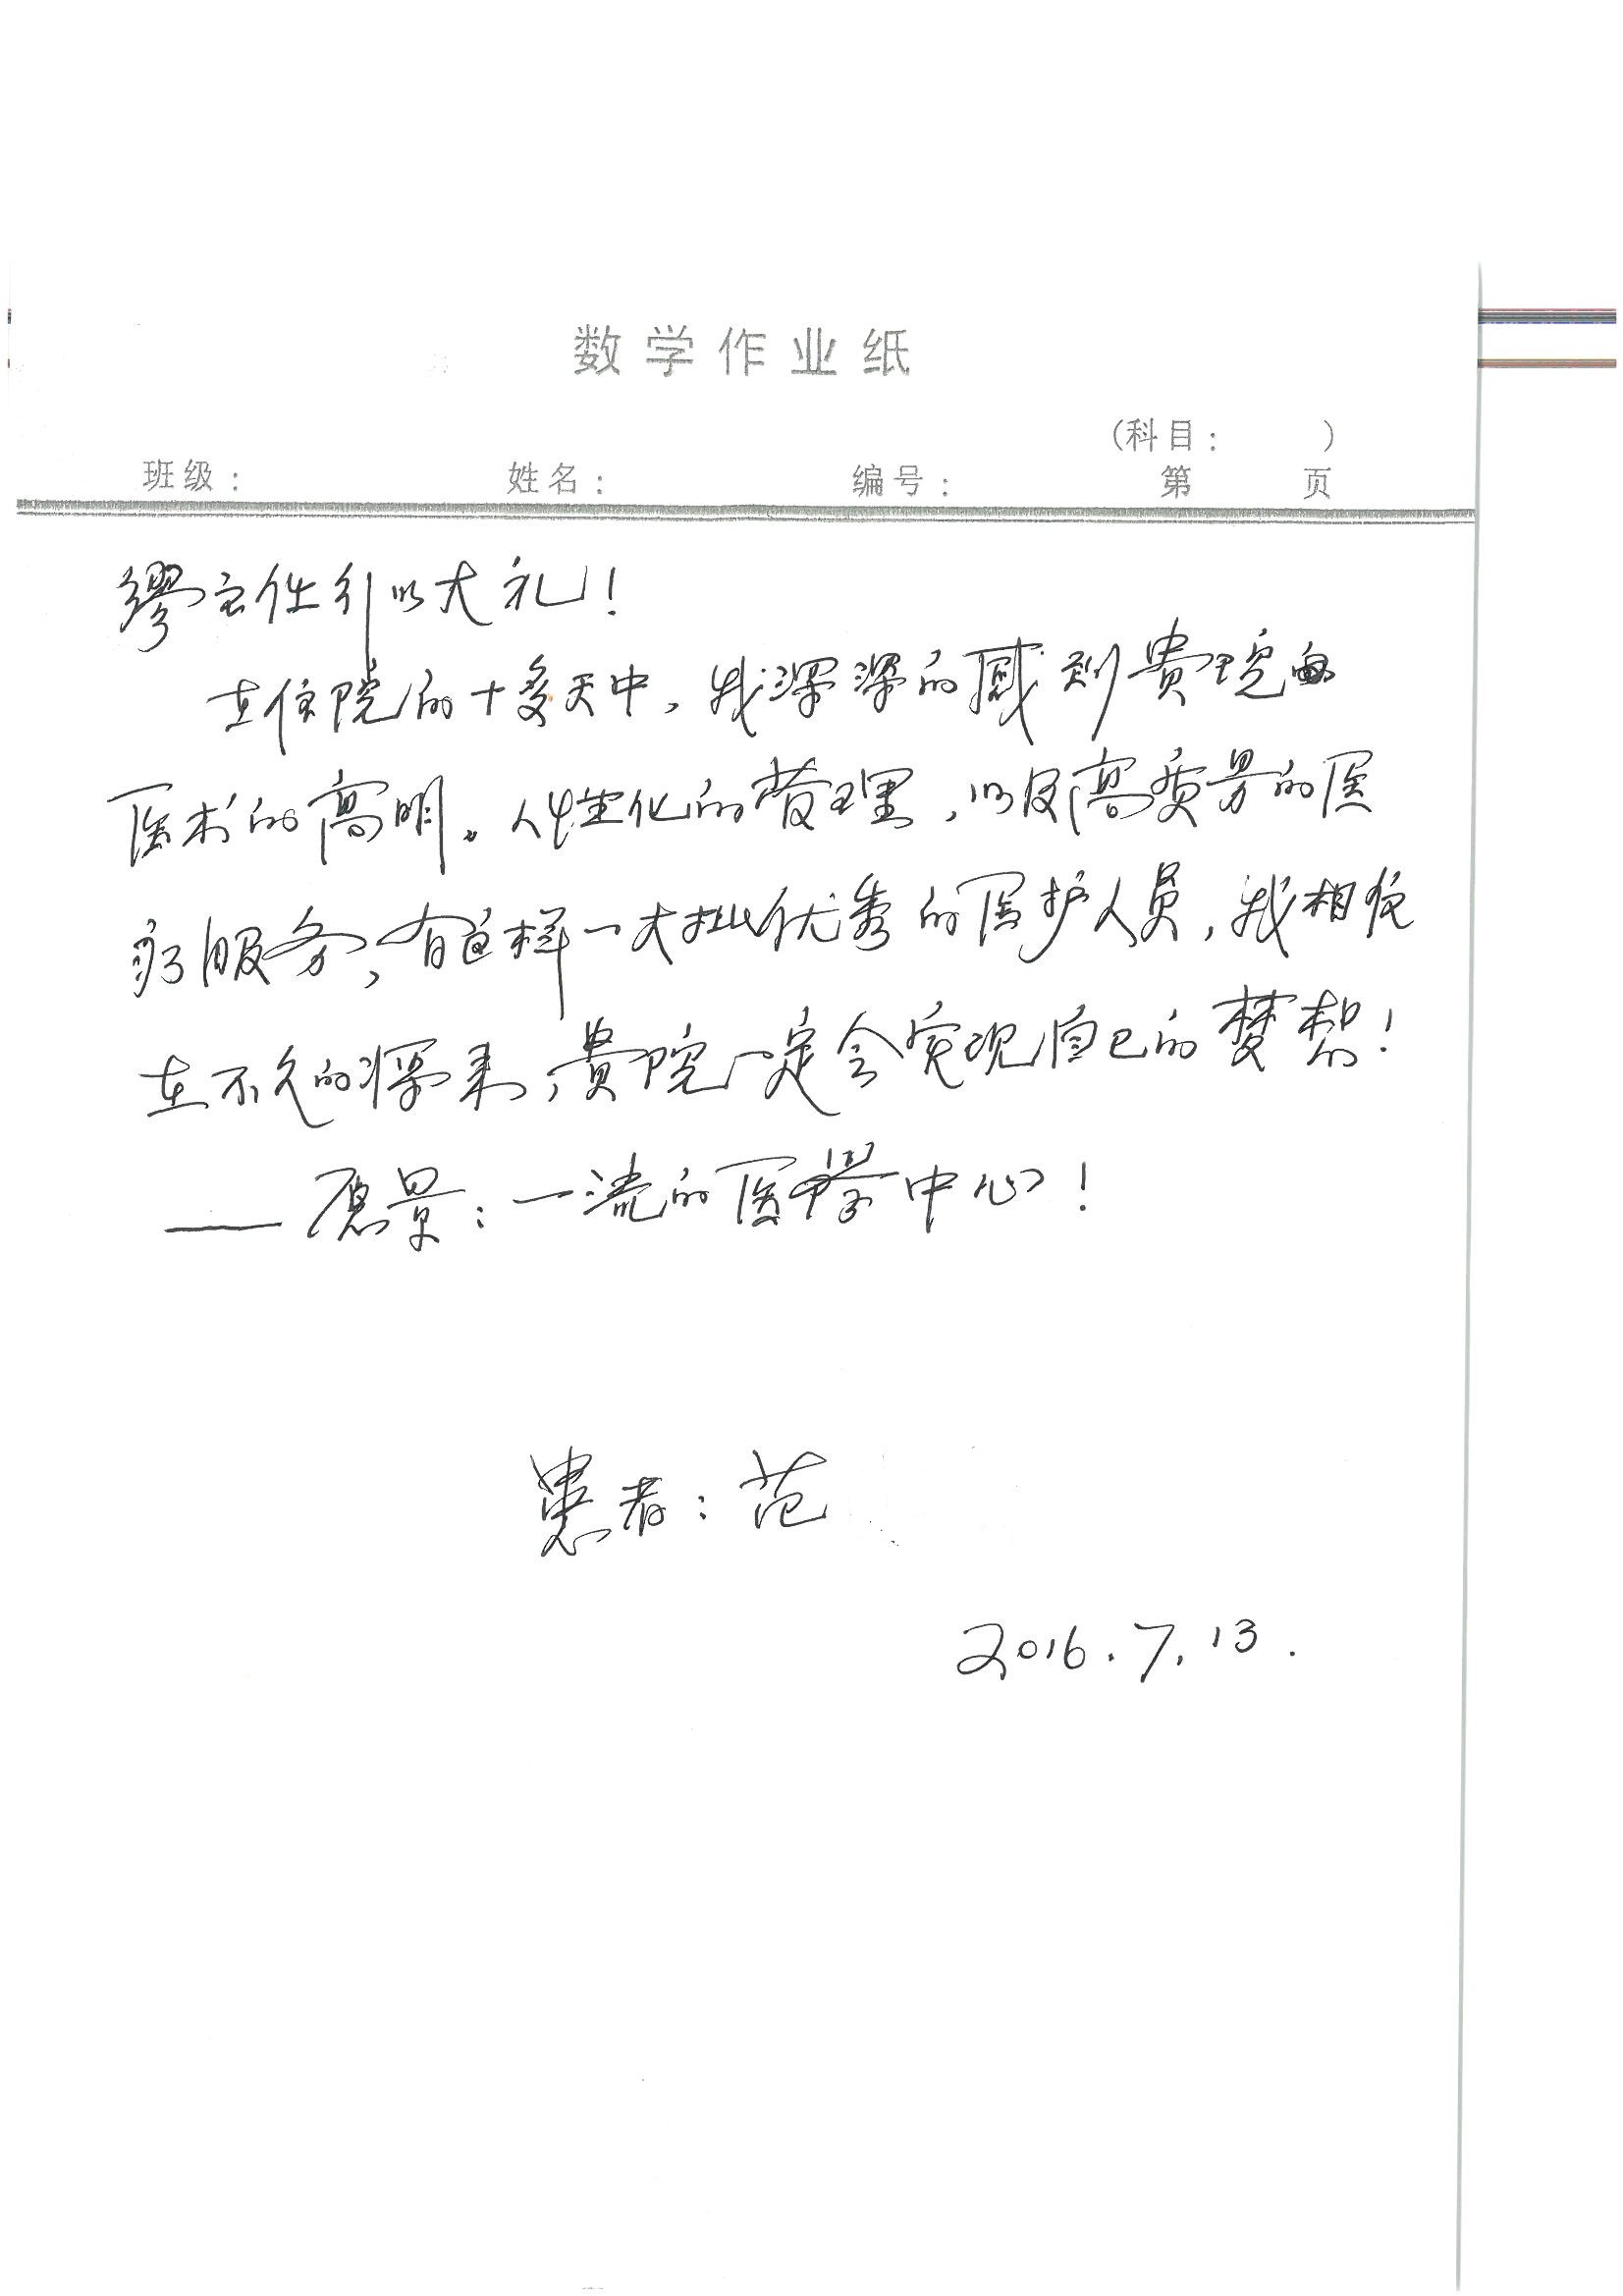 数学作业纸
(科目: )
班级: 姓名: 编号: 第 页
缪主任引以大礼!
在住院的十多天中,我深深的感到贵院
医术的高明。人性化的管理,以及高质量的医
疗服务,有这样一大批优秀的医护人员,我相信
在不久的将来,贵院一定会实现自己的梦想!
——愿景:一流的医学中心!
患者:范
2016.7.13.